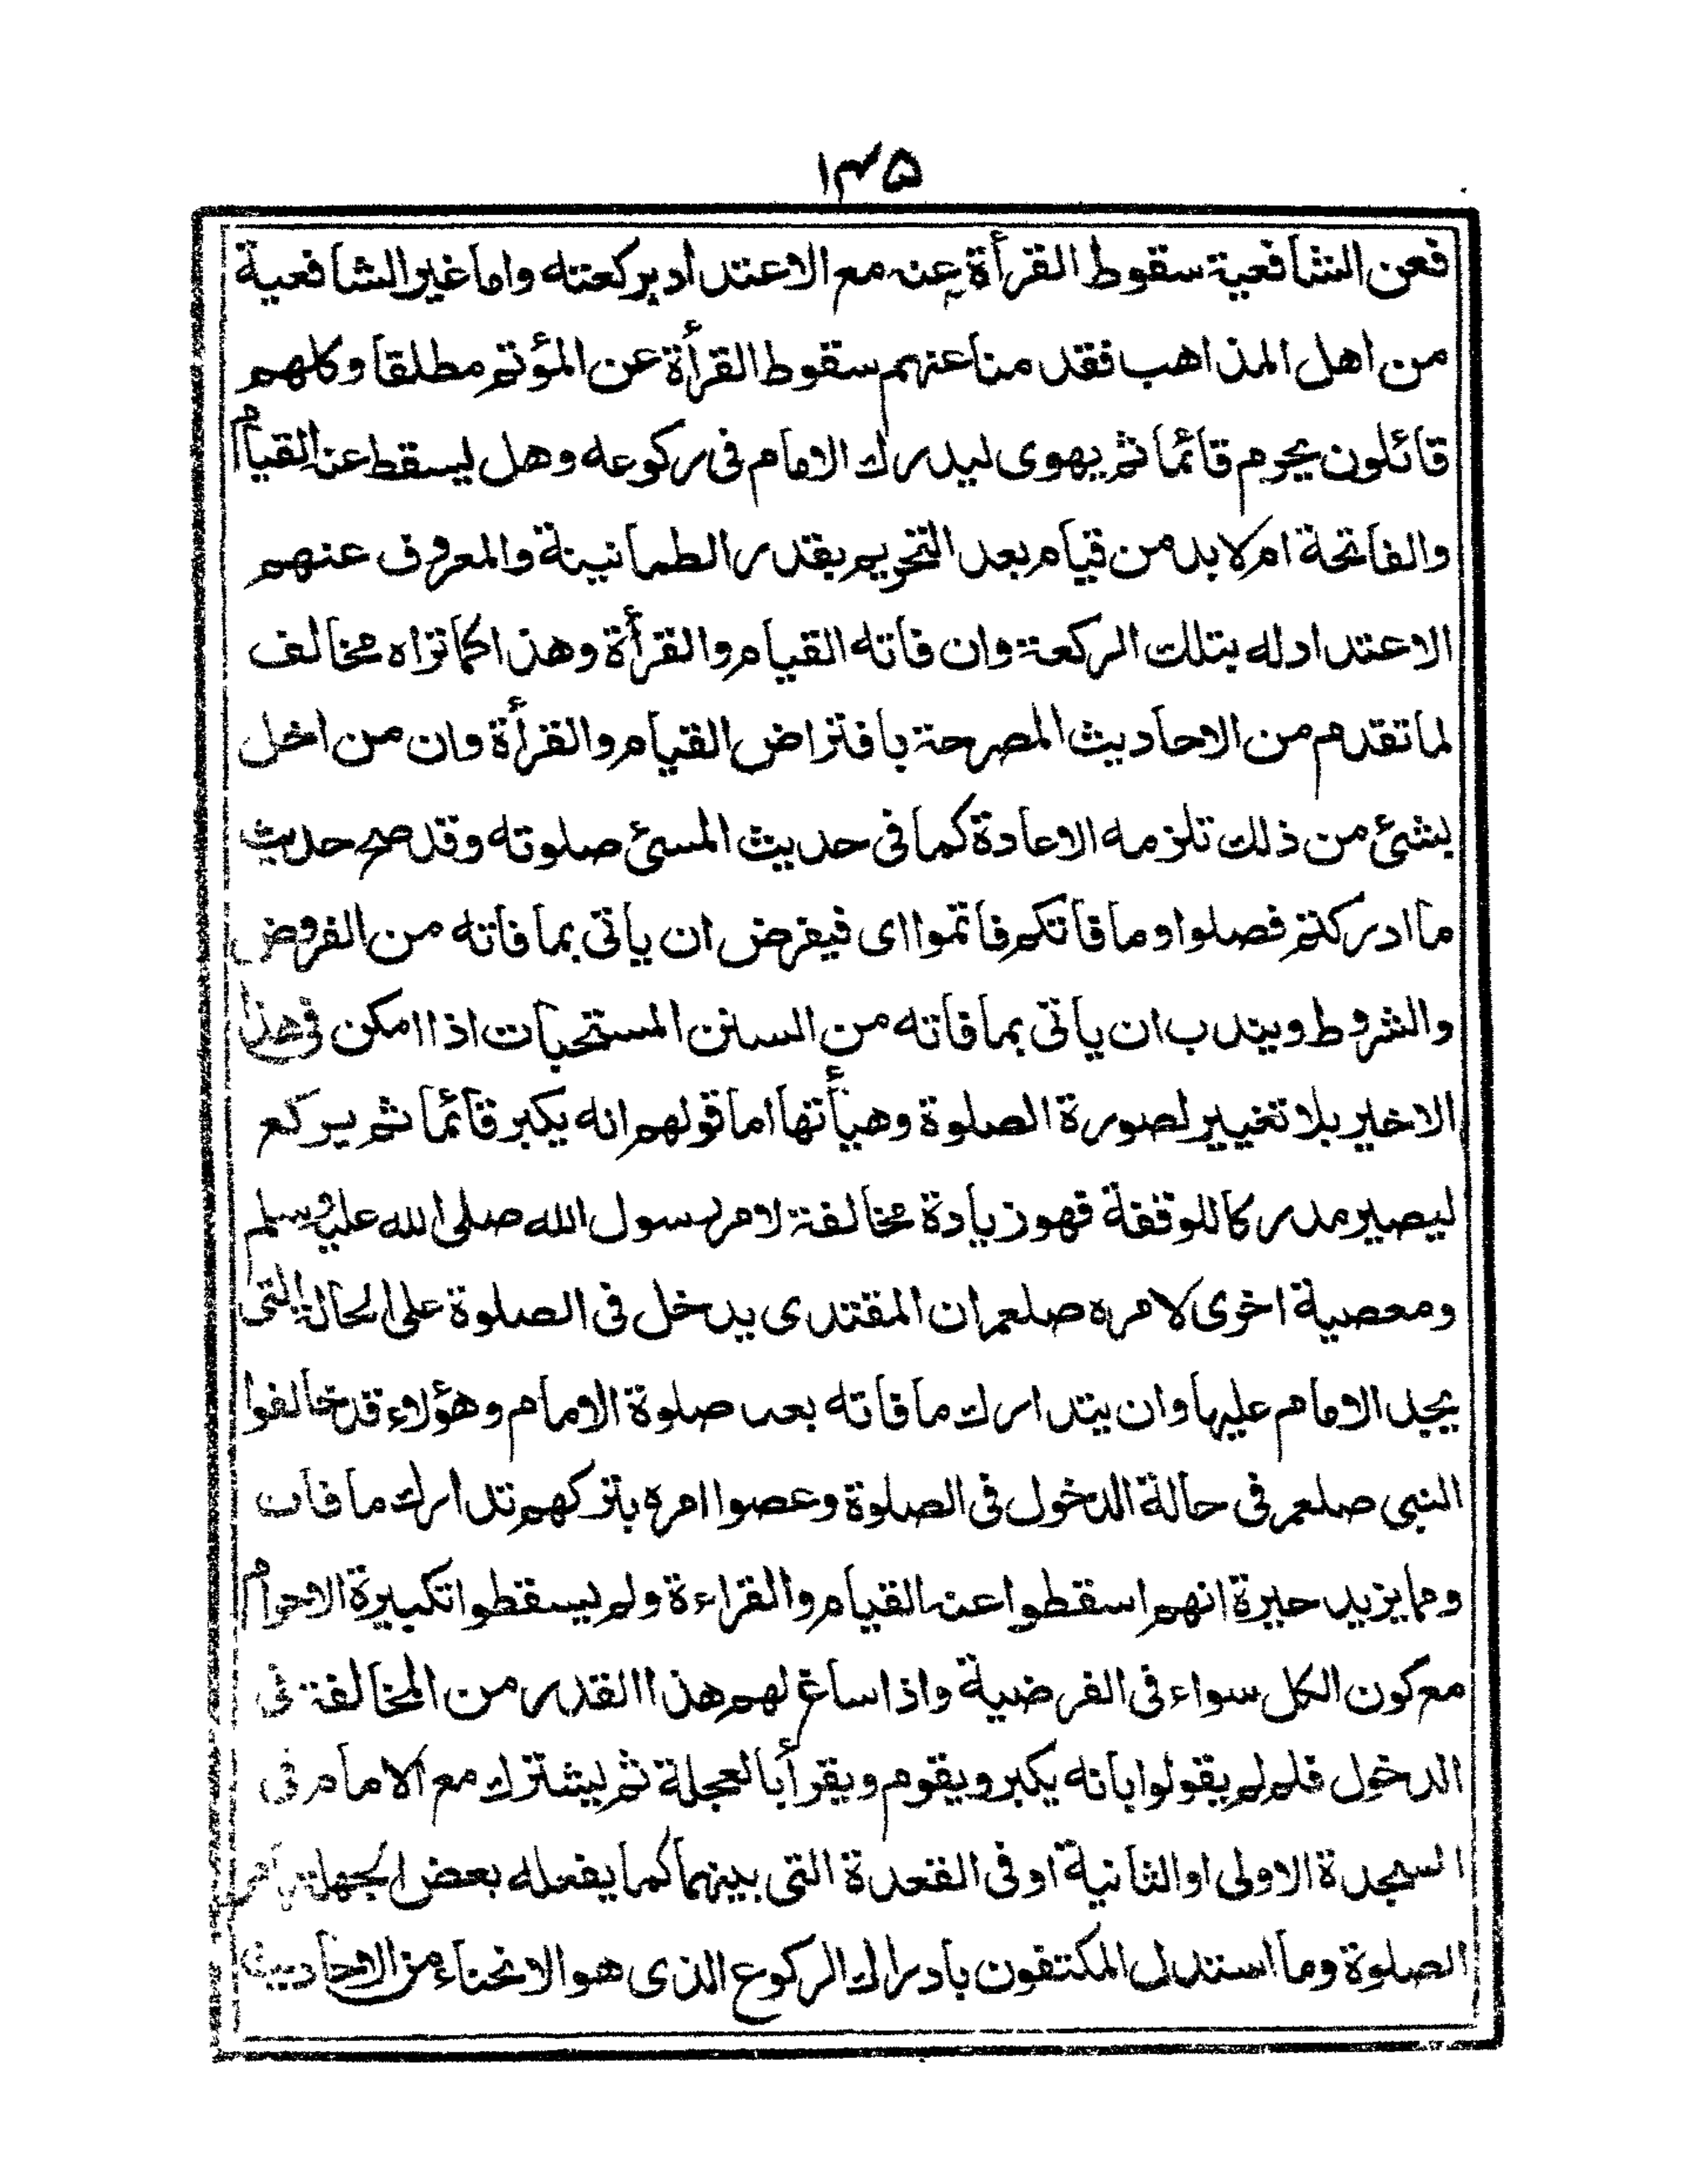 ۱۴۵
فعن الشافعية سقوط القرأة عنه مع الاعتداد بركعته واما غير الشافعية
من اهل المذاهب فقد مناعنهم سقوط القرأة عن المؤتم مطلقا وكلهم
قائلون يحرم قائما ثم يهوى ليدرك الامام فى ركوعه وهل يسقط عنه القيام
والفاتحة ام لابد من قيام بعد التحريم بقدر الطمانينة والمعروف عنهم
الاعتداد له بتلك الركعة وان فاته القيام والقرأة وهذا كما تراه مخالف
لما تقدم من الاحاديث المصرحة بافتراض القيام والقرأة وان من اخل
بشئ من ذلك تلزمه الاعادة كما فى حديث المسئ صلوته وقد صح حديث
ما ادركتم فصلوا وما فاتكم فاتموا اى فيفرض ان ياتى بما فاته من الفروض
والشروط ويندب ان ياتى بما فاته من السنن المستحبات اذا امكن فى هذا
الاخير بلا تغيير لصورة الصلوة وهيأتها اما قولهم انه يكبر قائما ثم يركع
ليصير مدركا للوقفة فهو زيادة مخالفة لامر رسول الله صلى الله عليه وسلم
ومعصية اخرى لامره صلعم ان المقتدى يدخل فى الصلوة على الحالة التى
يجد الامام عليها وان يتدارك ما فاته بعد صلوة الامام وهؤلاء قد خالفوا
النبى صلعم فى حالة الدخول فى الصلوة وعصوا امره بتركهم تدارك ما فات
ومما يزيد حيرة انهم اسقطوا عنه القيام والقراءة ولم يسقطوا تكبيرة الاحرام
مع كون الكل سواء فى الفرضية واذا ساغ لهم هذا القدر من المخالفة فى
الدخول فلم لم يقولوا بانه يكبر ويقوم ويقرأ بالعجلة ثم يشترك مع الامام فى
السجدة الاولى او الثانية او فى القعدة التى بينهما كما يفعله بعض الجهلة
الصلوة وما استدل المكتفون بادراك الركوع الذى هو الانحناء من الاحاديث